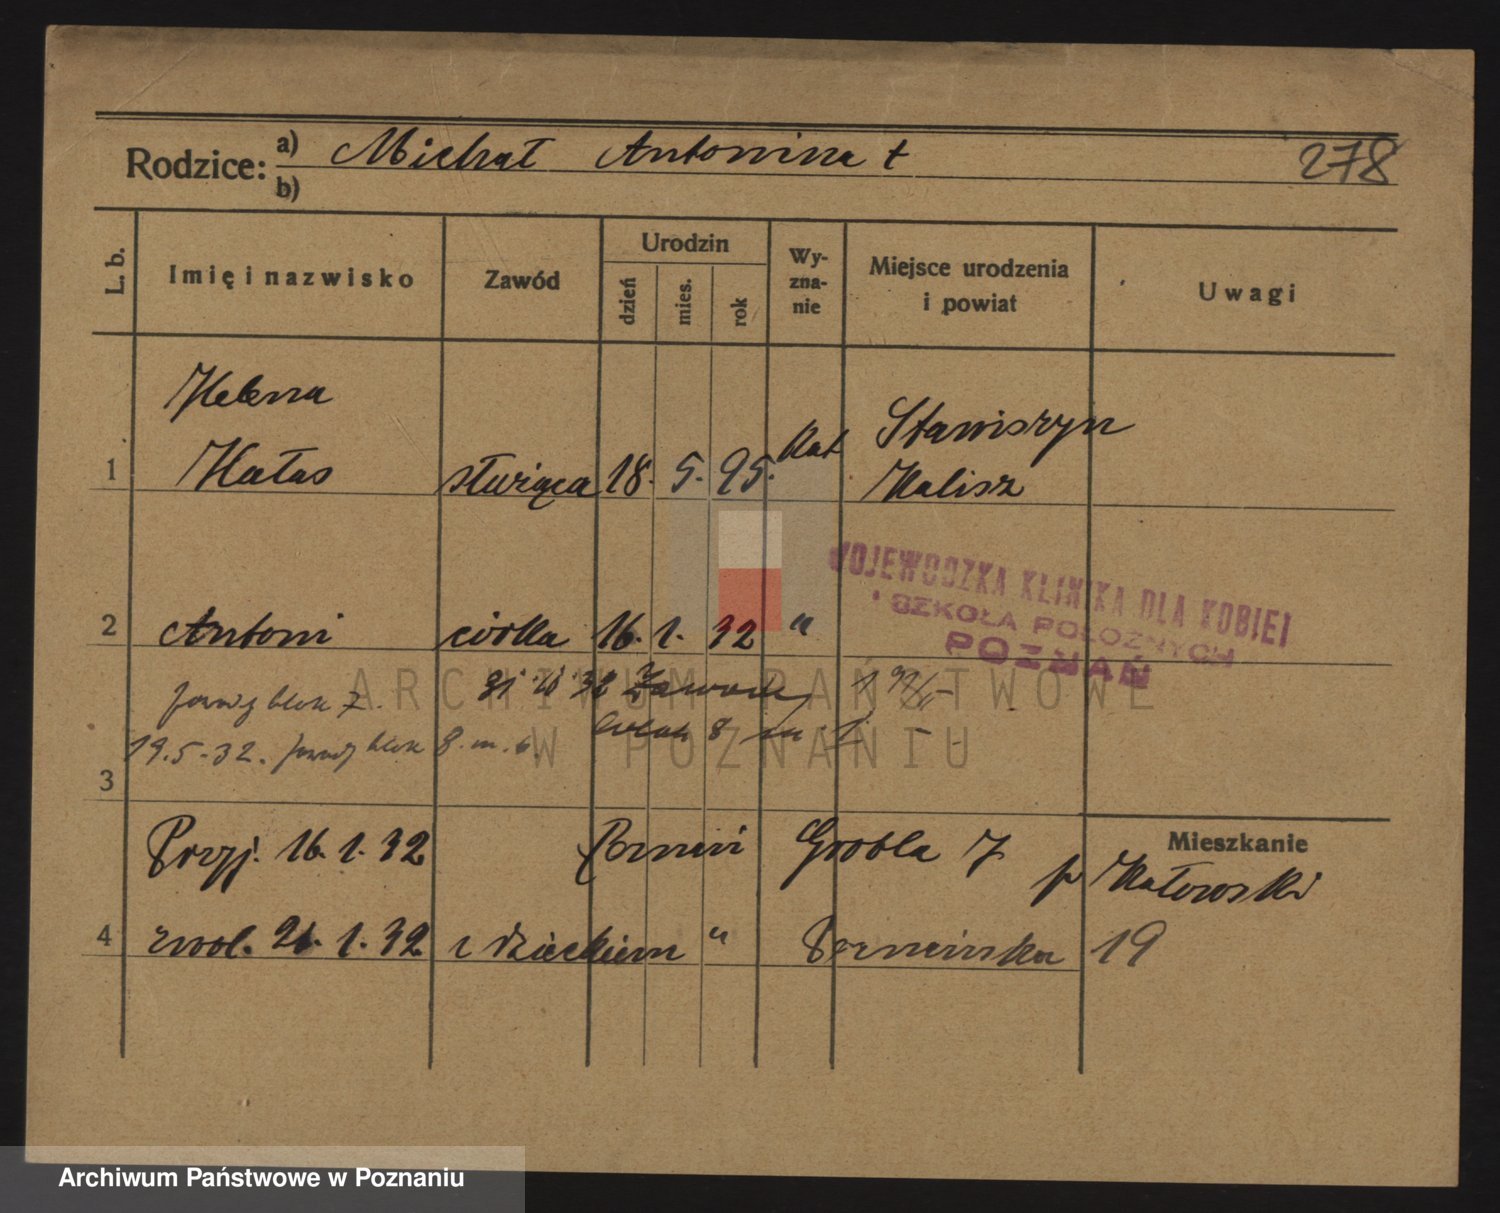 Rodzice: a) Michał Antonina † 278
b)
L. b. Imię i nazwisko Zawód Urodzin dzień mies. rok Wy-zna-nie Miejsce urodzenia i powiat Uwagi
Helena
1 Hałas służąca 18. 5. 95. kat Stawiszyn
Kalisz
WOJEWODZKA KLINIKA DLA KOBIET
I SZKOŁA POŁOŻNYCH
POZNAŃ
2 Antoni córka 16. 1. 32 "
blok 7.
19.5-32. blok 8. m. 6.
3
Mieszkanie
Przyj. 16. 1. 32 Grobla 7
4 zwol. 21. 1. 32 z dzieckiem " 19
ARCHIWUM PAŃSTWOWE
W POZNANIU
Archiwum Państwowe w Poznaniu